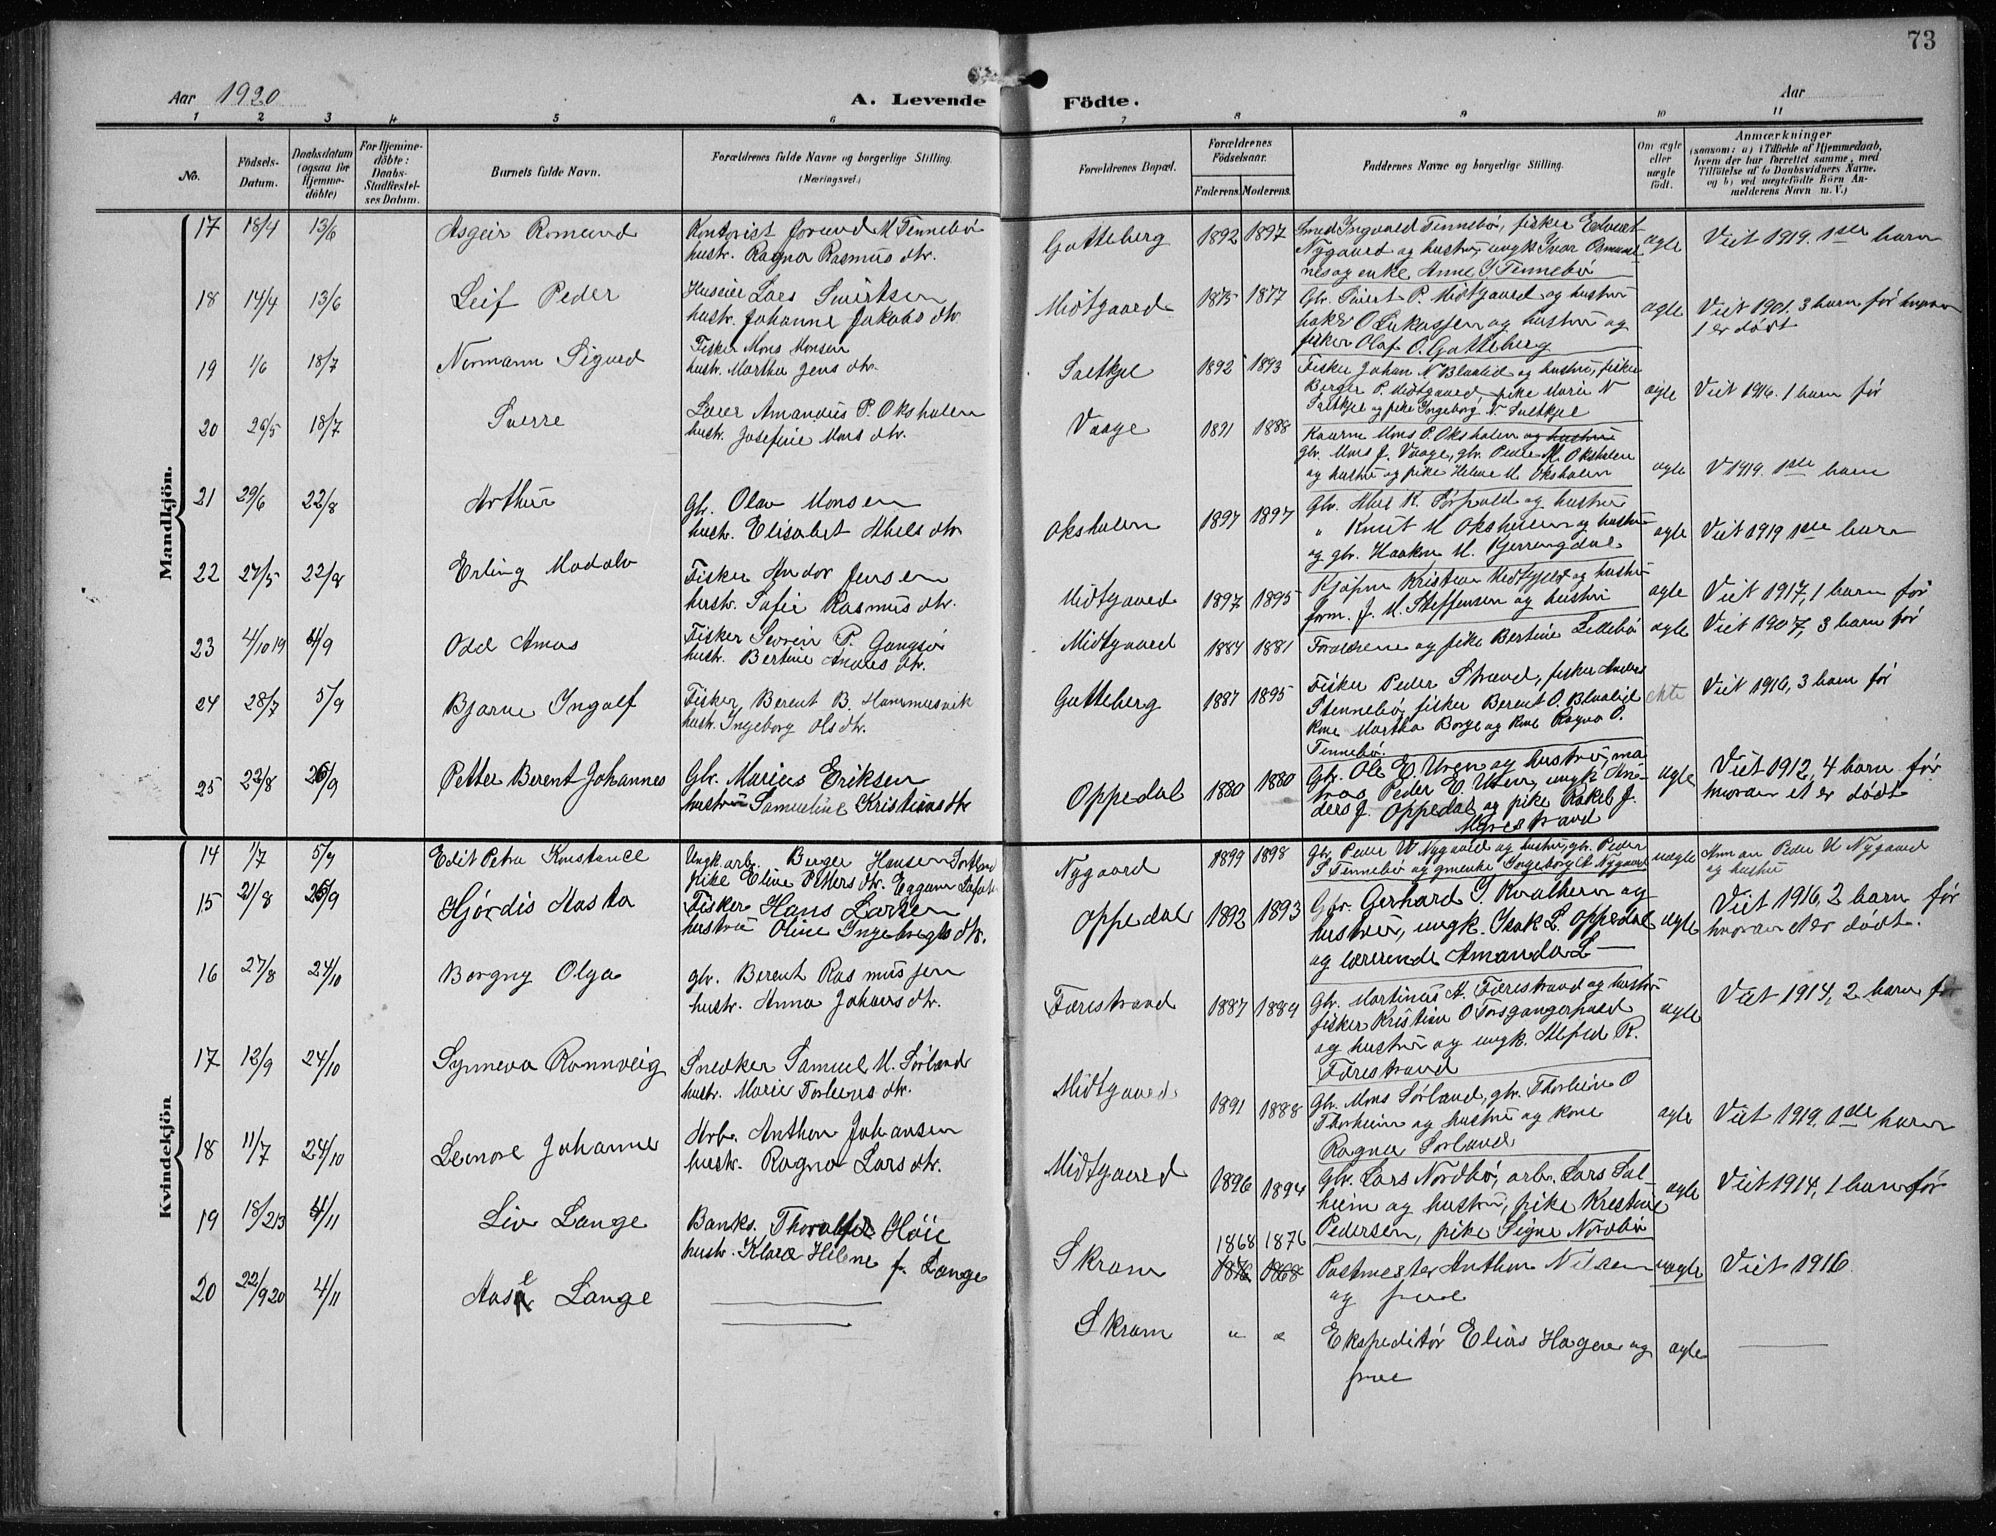 73
Aar 1920
A. Levende Födte.
Aar
1 2 3 4 5 6 7 8 9 10 11
No.
Födsels-
Datum.
Daabsdatum
(ogsaa for
Hjemme-
döbte)
For Hjemme-
döbte:
Daabs-
Stadfæstel-
ses Datum.
Barnets fulde Navn.
Forældrenes fulde Navne og borgerlige Stilling.
(Næringsvei.)
Forældrenes Bopæl.
Forældrenes
Födselsaar.
Faderens. Moderens.
Faddernes Navne og borgerlige Stilling.
Om ægte
eller
uægte
födt.
Anmærkninger
(saasom: a) i Tilfælde af Hjemmedaab,
hvem der har forrettet samme, med
Tilföielse af to Daabsvidners Navne,
og b) ved uægtefödte Börn An-
melderens Navn m. V.)
Mandkjön.
17 18/4 13/6 Asgeir Romund
Kontorist Jorund M Tennebö
hustr. Ragna Rasmus dtr.
Gotteberg 1892 1897
Smed Ingvard Tennebø, fisker Edvart
Nygaard og hustru, ungk. Ivar Osmund
nes og enke Anne I Tennebø
ægte Viet 1919. 1ste barn
18 14/4 13/6 Leif Peder
Huseier Lars Sivertsen
hustr. Johanne Jakobs dtr.
Midtgaard 1875 1877
Gbr. Sivert P. Midtgaard og hustru
baker O Lukassen og hustru og
fisker Olaf O. Gotteberg
ægte Viet 1901. 3 barn før hvorav
1 er dødt
19 1/6 18/7 Normann Sigurd
Fisker Mons Monsen
hustr. Martha Jens dtr.
Saltkjel 1892 1893
Fisker Johan N Blaalid og hustru, fisker
Berger P. Midtgaard, pike Marie N
Saltkjel og pike Ingeborg N. Saltkjel
ægte Viet 1916. 1 barn før
20 26/5 18/7 Sverre
Lærer Amandus P. Oksholen
hustr. Josefine Mons dtr.
Vaage 1891 1888
Kaarm Mons P. Oksholen og hustru
gbr. Mons J. Vaage, gbr. Peder M. Oksholen
og hustru og pike Helene M. Oksholen
ægte V 1919. 1ste barn
21 29/6 22/8 Arthur
Gbr. Olav Monsen
hustr. Elisabet Abels dtr
Oksholen 1897 1897
Gbr. Abel K. Sørpold og hustru
" Knut M Oksholen og hustru
og gbr. Haakon M. Kjerringdal
ægte Viet 1919 1ste barn
22 27/5 22/8 Erling Modolv
Fisker Andor Jensen
hustr. Sofie Rasmus dtr.
Midtgaard 1897 1895
Kjøpm Kristian Midtgaard og hustru
form. J. M. Steffensen og hustru
ægte Viet 1917, 1 barn før
23 4/10 19 4/9 Odd Amos
Fisker Severin P. Gangsø
hustr. Bertine Andreas dtr.
Midtgaard 1884 1881
Forældrene og pike Bertine Lillebø
ægte Viet 1907, 3 barn før
24 28/7 5/9 Bjarne Ingolf
Fisker, Berent B. Hammersvik
hustr. Ingeborg Ols dtr.
Gotteberg 1887 1895
Fisker Peder Strand, fisker Andreas
Stennebø, fisker Berent O. Blaalid
kone Martha Borge og kone Ragna O.
Tennebø.
ekte Viet 1916, 3 barn før
25 22/8 26/9 Petter Berent Johannes
Gbr. Marius Eriksen
hustru Samueline Kristians dtr
Oppedal 1880 1880
Gbr. Ole E. Uren og hustru, ma
tros Peder E. Uren, ungk An-
ders J. Oppedal og pike Rakel J.
Myrestrand
ægte Viet 1912, 4 barn før
hvorav et er dødt
Kvindekjön
14 1/7 5/9 Edit Petra Konstance
Ungk arb. Berger Hansen Sortland
pike Eline Petters dtr. Eggum Lofoten
Nygaard 1899 1898
Gbr. Peder M Nygaard og hustru, gbr. Peder
S Tennebø og gmenke Ingeborg A Nygaard
uægte Anm av Peder M Nygaard
og hustru
15 21/8 26/9 Hjørdis Aasta
Fisker Hans Larsen
hustru Oline Ingebregts dtr.
Oppedal 1892 1893
Gbr. Gerhard I Kvalheim og
hustru, ungk. Isak L Oppedal
og lærerinde Amanda L —
ægte Viet 1916, 2 barn før
hvorav et er dødt.
16 27/8 24/10 Borgny Olga
gbr. Berent Rasmussen
hustr. Anna Johans dtr.
Færestrand 1887 1889
Gbr. Martinus A. Færestrand og hustru
fisker Kristian O Torsgangerpaald
og hustru og ungk. Alfred R.
Færestrand
ægte Viet 1914, 2 barn før
17 12/9 24/10 Synneva Ronnveig
Snedker Samuel M. Sørland
hustr. Marie Torleivs dtr.
Midtgaard 1891 1888
Gbr. Mons Sørland, gbr. Thorleiv O
Thorheim og hustru og kone
Ragna Sørland
ægte Viet 1919. 1ste barn
18 11/7 24/10 Leinore Johanne
Arb. Anthon Johansen
hustr. Ragna Lars dtr.
Midtgaard 1896 1894
Gbr. Lars Nordbø, arb. Lars Sal-
heim og hustru, pike Kristine
Pedersen, pike Signe Nordbø
ægte Viet 1914, 1 barn før
19 18/2 13 4/11 Liv Lange
Banks. Thoralf Høie
hustr. Klara Helene f. Lange
Skram 1868 1876
1876 1868
Postmester Anthon Nilsen
og frue
uægte Viet 1916.
20 22/9 20 4/11 Aase Lange
Skram " "
Ekspeditør Elias Hagen og
frue
ægte